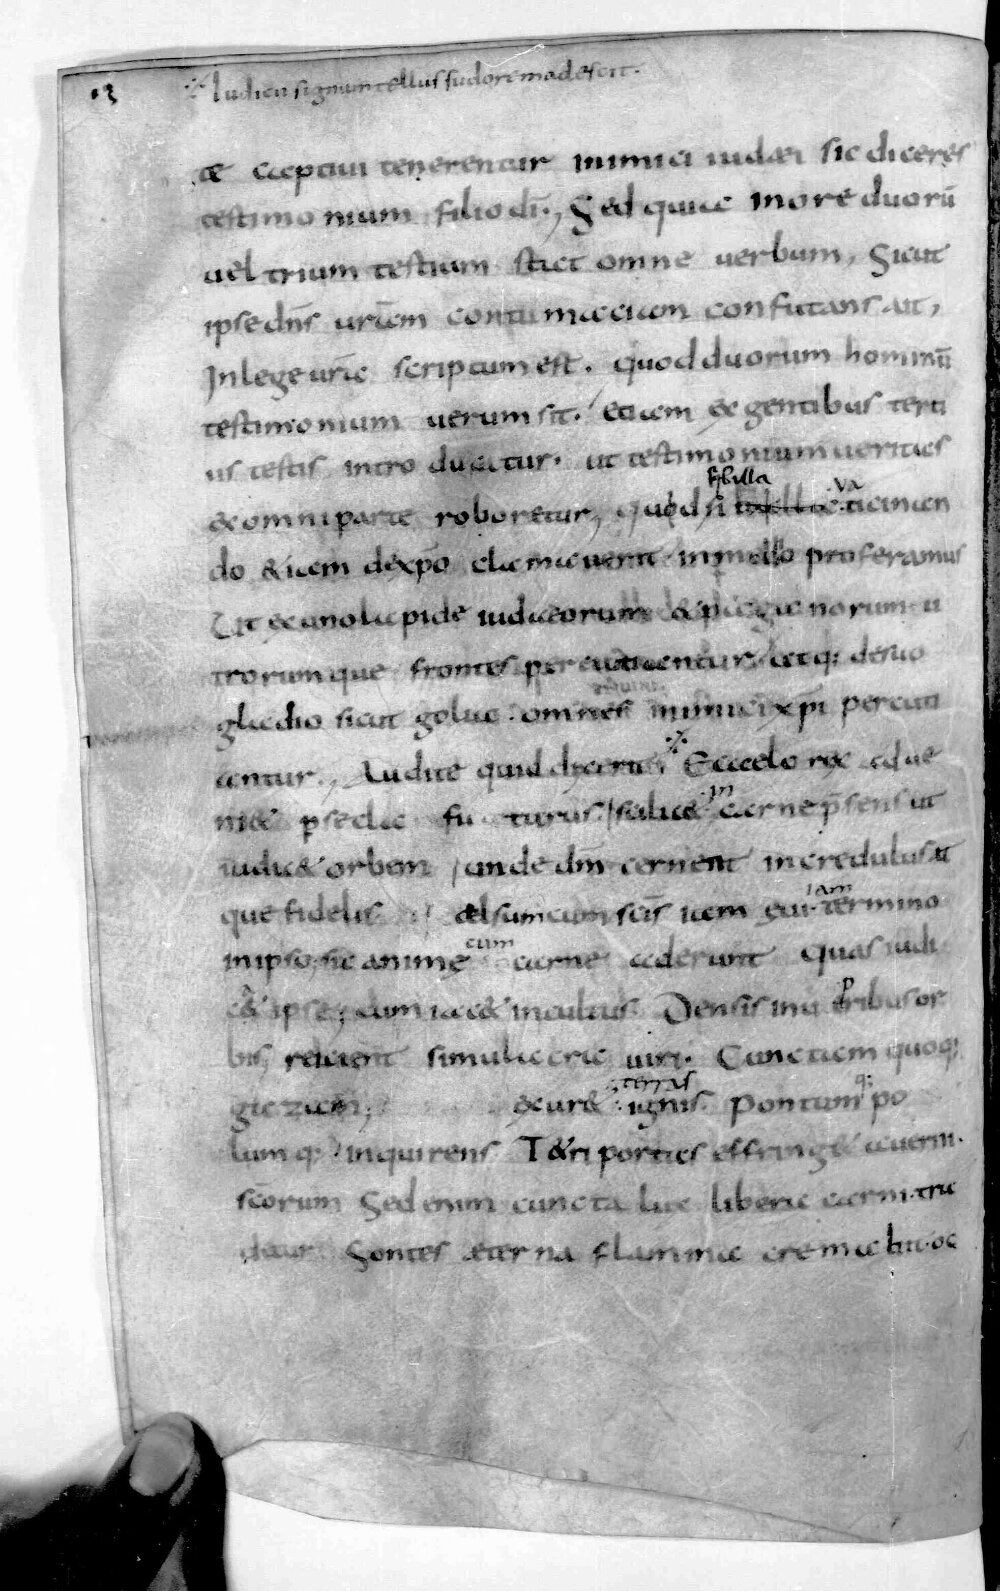 13
Iudicii signum tellus sudore madescit.
te captiui tenerentur inimici iudæi sic diceres
testimonium filio dī. Sed quia in ore duorū
uel trium testium stat omne uerbum, Sicut
ipse dn̄s urām contumaciam confutans ait,
In lege urā scriptum est. quod duorum hominū
testimonium uerum sit. etiam ex gentibus terti
us testis introducitur. ut testimonium ueritas
ex omni parte roboretur, quod si sybilla uaticinan
do &iam de xp̄o clamauerit in medio proferamus
Ut ex uno lapide iudaeorum & paganorum u
trorumque frontes percutiantur atq; de suo
gladio sicut golias omnes inimici xp̄i percuti
antur., Audite quid dixerit. E caelo rex adue
ni& p secla futurus, scilic& in carne p̄sens ut
iudic& orbem, unde dm̄ cernent incredulus at
que fidelis celsum cum scīs iam eui iam termino
in ipso, sic anime cum carne aderunt quas iudi
c& ipse, cum iac& incultus Densis in uepribus or
bis, reicient simulacra uiri. Cunctam quoq;
gazam, exur& terras ignis Pontumq; po
lumq; inquirens T&ri portas effring& auerni.
scōrum Sed enim cuncta lux libera carni. tra
d&ur Sontes æterna flamma cremabit. oc